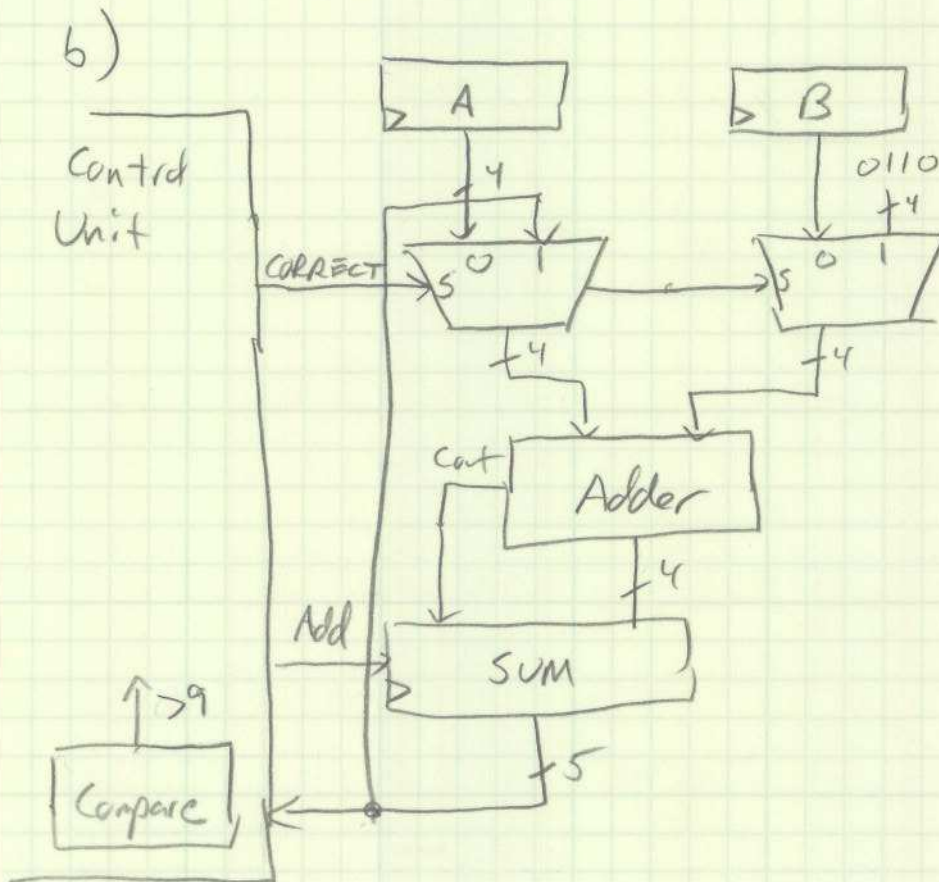 b)
A
B
Control
Unit
4
0110
4
CORRECT
S
0
1
S
0
1
4
4
Cout
Adder
4
Add
SUM
>9
5
Compare